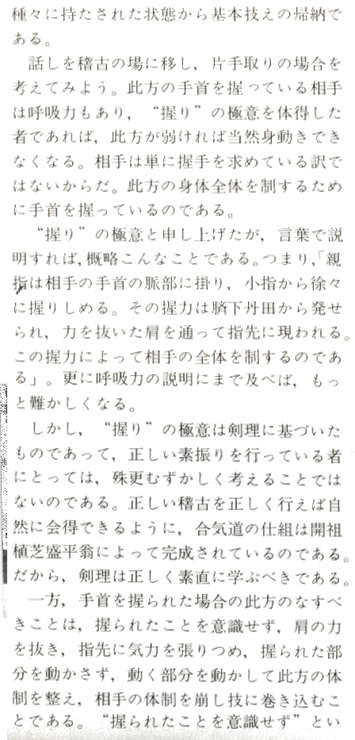 種々に持たされた状態から基本技えの帰納で
ある。
話しを稽古の場に移し，片手取りの場合を
考えてみよう。此方の手首を握っている相手
は呼吸力もあり，“握り”の極意を体得した
者であれば，此方が弱ければ当然身動きでき
なくなる。相手は単に握手を求めている訳で
はないからだ。此方の身体全体を制するため
に手首を握っているのである。
“握り”の極意と申し上げたが，言葉で説
明すれば，概略こんなことである。つまり，「親
指は相手の手首の脈部に掛り，小指から徐々
に握りしめる。その握力は臍下丹田から発せ
られ，力を抜いた肩を通って指先に現われる。
この握力によって相手の全体を制するのであ
る」。更に呼吸力の説明にまで及べば，もっ
と難かしくなる。
しかし，“握り”の極意は剣理に基づいた
ものであって，正しい素振りを行っている者
にとっては，殊更むずかしく考えることでは
ないのである。正しい稽古を正しく行えば自
然に会得できるように，合気道の仕組は開祖
植芝盛平翁によって完成されているのである。
だから，剣理は正しく素直に学ぶべきである。
一方，手首を握られた場合の此方のなすべ
きことは，握られたことを意識せず，肩の力
を抜き，指先に気力を張りつめ，握られた部
分を動かさず，動く部分を動かして此方の体
制を整え，相手の体制を崩し技に巻き込むこ
とである。“握られたことを意識せず”とい